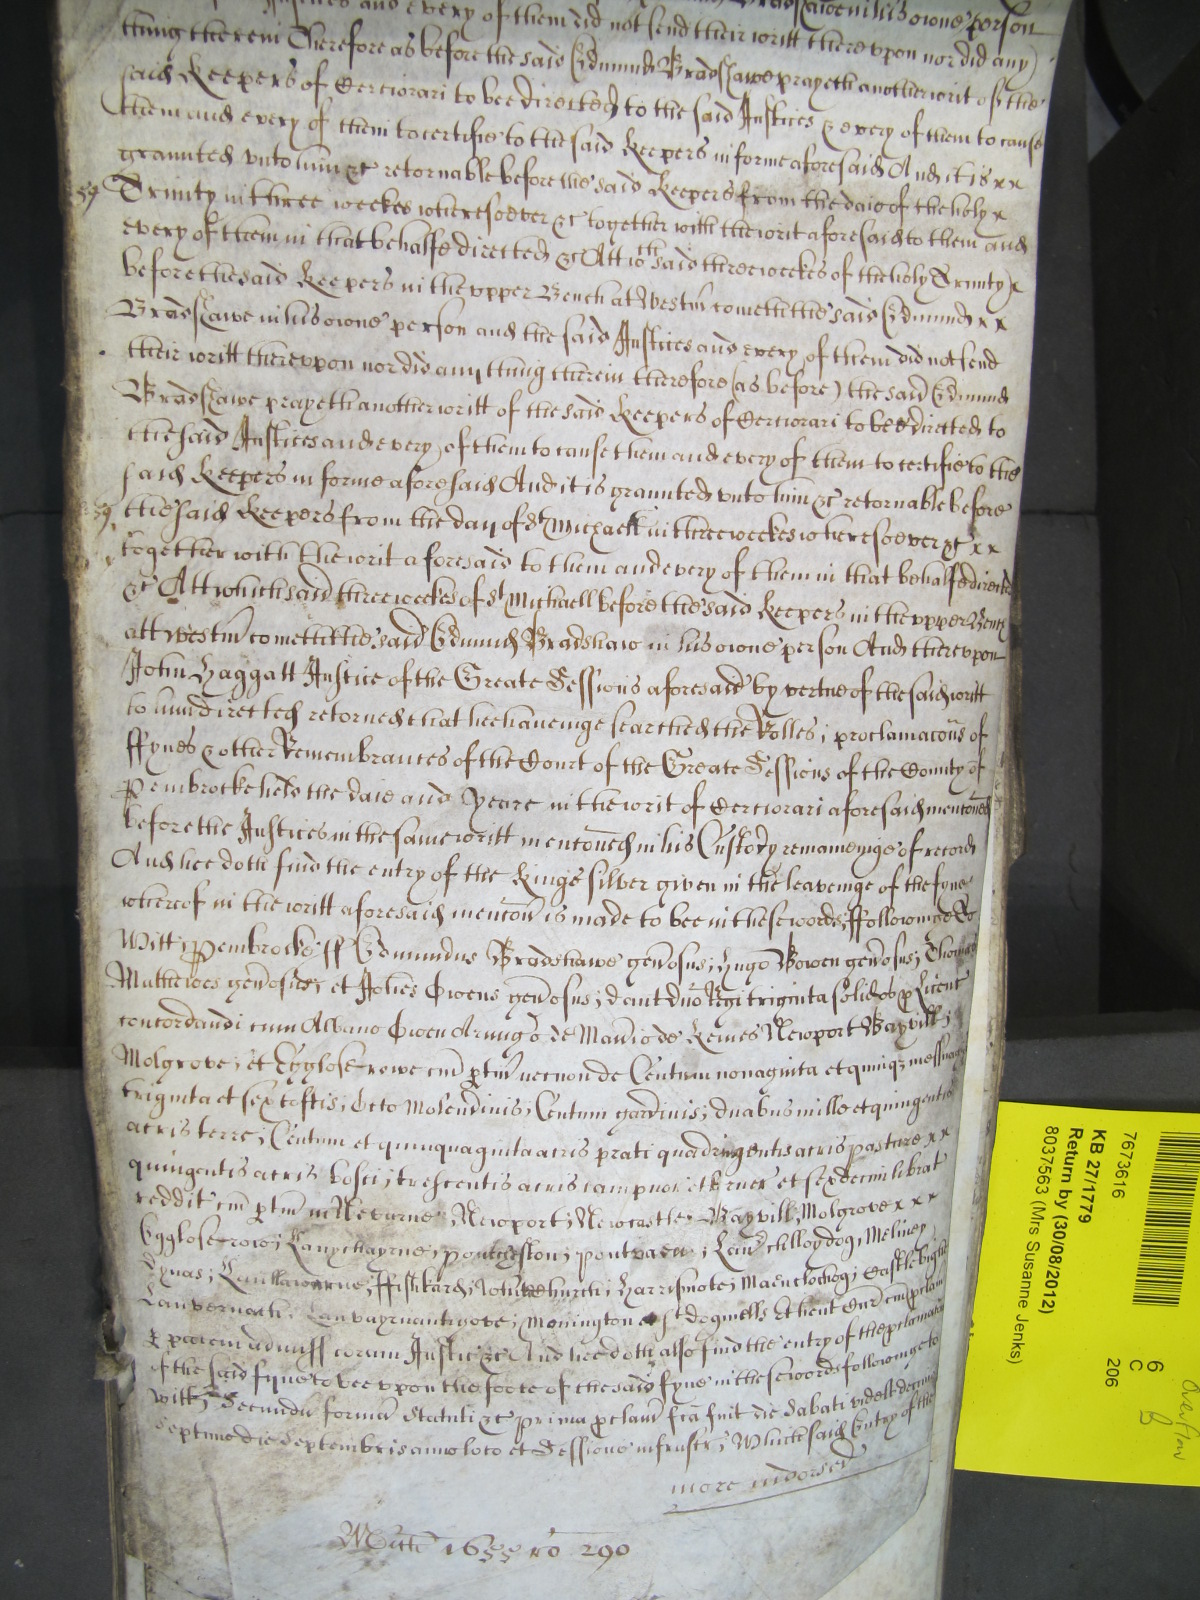 Justices and every of them did not send their writt thereupon nor did any
thing therein Therefore as before the said Edmund Bradshawe prayeth another writ of the
said Keepers of Cerciorari to bee directed to the said Justices & every of them to cause
them and every of them to certifie to the said Keepers in forme aforesaid And it is x x
graunted unto him &c retornable before the said Keepers from the daie of the holy x
Trinity in three weekes wheresoever &c together with the writ aforesaid to them and
every of them in that behalfe directed &c Att wch said three weekes of the holy Trinity x
before the said Keepers in the upper Bench at Westm cometh the said Edmund x x
Bradshawe in his owne person and the said Justices and every of them did not send
their writt thereupon nor did any thing therein therefore (as before) the said Edmund
Bradshawe prayeth another writt of the said Keepers of Cerciorari to bee directed to
the said Justices and every of them to cause them and every of them to certifie to the
said Keepers in forme aforesaid And it is graunted unto him &c retornable before
the said Keepers from the day of St Michaell in three weekes wheresoever &c x x
together with the writ aforesaid to them and every of them in that behalfe directed
&c Att which said three weekes of St Michaell before the said Keepers in the upper Bench
att Westm cometh the said Edmund Bradshaw in his owne person And thereupon
John Haggatt Justice of the Greate Sessions aforesaid by vertue of the said writt
to him directed retorned that hee haveinge searched the Rolles, proclamacons of
ffynes & other Remembrances of the Court of the Greate Sessions of the County of
Pembrocke held the daie and yeare in the writ of Cerciorari aforesaid mentoned
before the Justices in the same writt mentoned in his Custody remaineinge of record
And hee doth find the entry of the Kings silver given in the leaveinge of the fyne
whereof in the writt aforesaid mention is made to bee in these words followinge To
Witt, Pembrocke ff Edmundus Bradshawe generosus, Hugo Bowen generosus, Thomas
Mathewes generosus, et Johes Owens generosus, dant dno Regi triginta solidos p licent
concordandi cum Albano Owen Armigo de Manio de Kemes Newport Bayvill,
Molgrove, et Egglose rowe cum ptin necnon de Centum nonaginta et quinqz messuagis
triginta et sex toftis, Octo Molendinis, Centum gardinis, duabus mille et quingentis
acris terre, Centum et quinquaginta acris prati quadringentis acris pasture x x
quingentis acris bosci, trescentis acris iampnor et bruer et sexdecim librat
reddit cum ptin in Neverne, Newport, Newcastle, Bayvill, Molgrove x x x
Egglose rowe, Lanychayrne, ponteston, pontvaen, Meliney
Dynas, ffishkard, Whitchurch, Harrismote, Maenclochog, Castle bight
Lanvernach, Monington & St dogmells Et hent Cur cum pclam
p pacem admiss coram Justic &c And hee doth also find the entry of the pclamacon
of the said fyne to bee upon the foote of the said fyne in these words followinge to
witt, Secundu formam Statuti &c prima pclam fca fuit die Sabati videlt decimo
septimo die Septembris anno loco et Sessione infrascr, Which said Entry of the
more indorsed
Mich 1655 ro 290
7673616
KB 27/1779
Return by (30/08/2012)
8037563 (Mrs Susanne Jenks)
6
C
206
Overflow
B